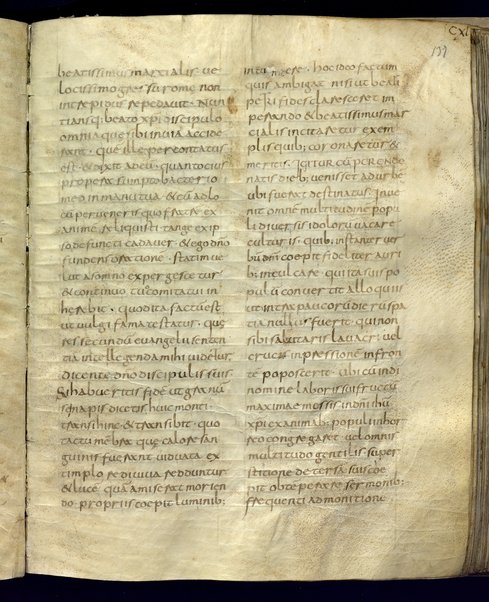 CXL
133
beatissimus martialis ve
locissimo gressu romę non
intrepidus repedavit. Nun
tiansq; beato xpi discipulo
omnia que sibi in via accide
rant. que ille percontatus
est. & dixit ad eū. quantocius
propera sumpto bacterio
meo in manu tua. & cū ad lo
cū perveneris quo fratrē ex
animē reliquisti tange ex ip
so defuncti cadaver & ego dño
fundens oratione. statim ve
lut a somno expergescetur
& continuo tuo comitatui in
herebit. quod ita factū est
ut vulgi fama testatur. que
res secundū evangelii senten
tia intellegenda mihi videtur
dicente dño discipulis suis.
Si habueritis fidē ut granū
sinapis dicetis huic monti
transi hinc & transibit. quo
tactu mēbra que calore san
guinis fuerant viduata ex
timplo rediviva redduntur
& lucē quā amiserat morien
do propriis coepit luminib;
hoc ideo factum
quis ambigat nisi ut beati
petri fides claresceret im
perando & beatissimus mar
cialis incitaretur exem
plis quib; coronaretur &
meritis. Igitur cū peregre
natis dieb; venisset ad urbē
ubi fuerat destinatus. Inve
nit omnē multitudinē popu
li diversis idolorū vacare
culturis. quib; instanter ver
bū dñi coepit fideliter auri
b; inculcare. quita suis po
pulū convertit alloquiis
ut intra paucorū dierū spa
tia nullus fuerit qui non
sibi salutaris lavacri vel
crucis inpressione in fron
te poposcerit. ubi cū in di
nomine laboris sui fructū
maximae messis in dñi ihū
xpi examinab; populi in hor
reo congregaret. vel omnis
multitudo gentilis super
stitione detersa suscoe
pit obtēperare sermonib;
frequenti admonitione